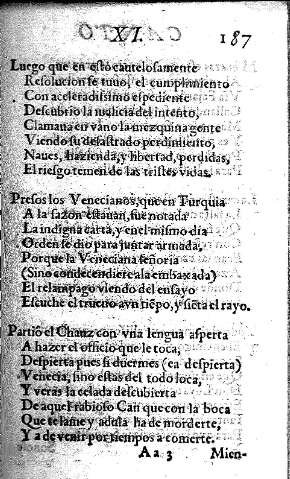 XI.
187
Luego que en esto cautelosamente
Resolucion se tuuo, el cumplimiento
Con aceleradissimo espediente
Descubrio la malicia del intento,
Clamaua en vano la mezquina gente
Viendo su desastrado perdimiento,
Naues, hazienda, y libertad, perdidas,
El riesgo temen de las tristes vidas.
Presos los Venecianos, que en Turquia
A la sazon estauan, fue notada
La indigna carta, y en el mismo dia
Orden se dio para juntar armada,
Porque la Veneciana señoria
(Sino condecendiere a la embaxada)
El relampago viendo del ensayo
Escuche el trueno a vn tiẽpo, y siẽta el rayo.
Partio el Chauz con vna lengua asperta
A hazer el officio que le toca,
Despierta pues si duermes (ea despierta)
Venecia, sino estas del todo loca,
Y veras la celada descubierta
De aquel rabioso Can que con la boca
Que te lame y adula ha de morderte,
Y a de venir por tiempos a comerte.
Aa 3 Mien-